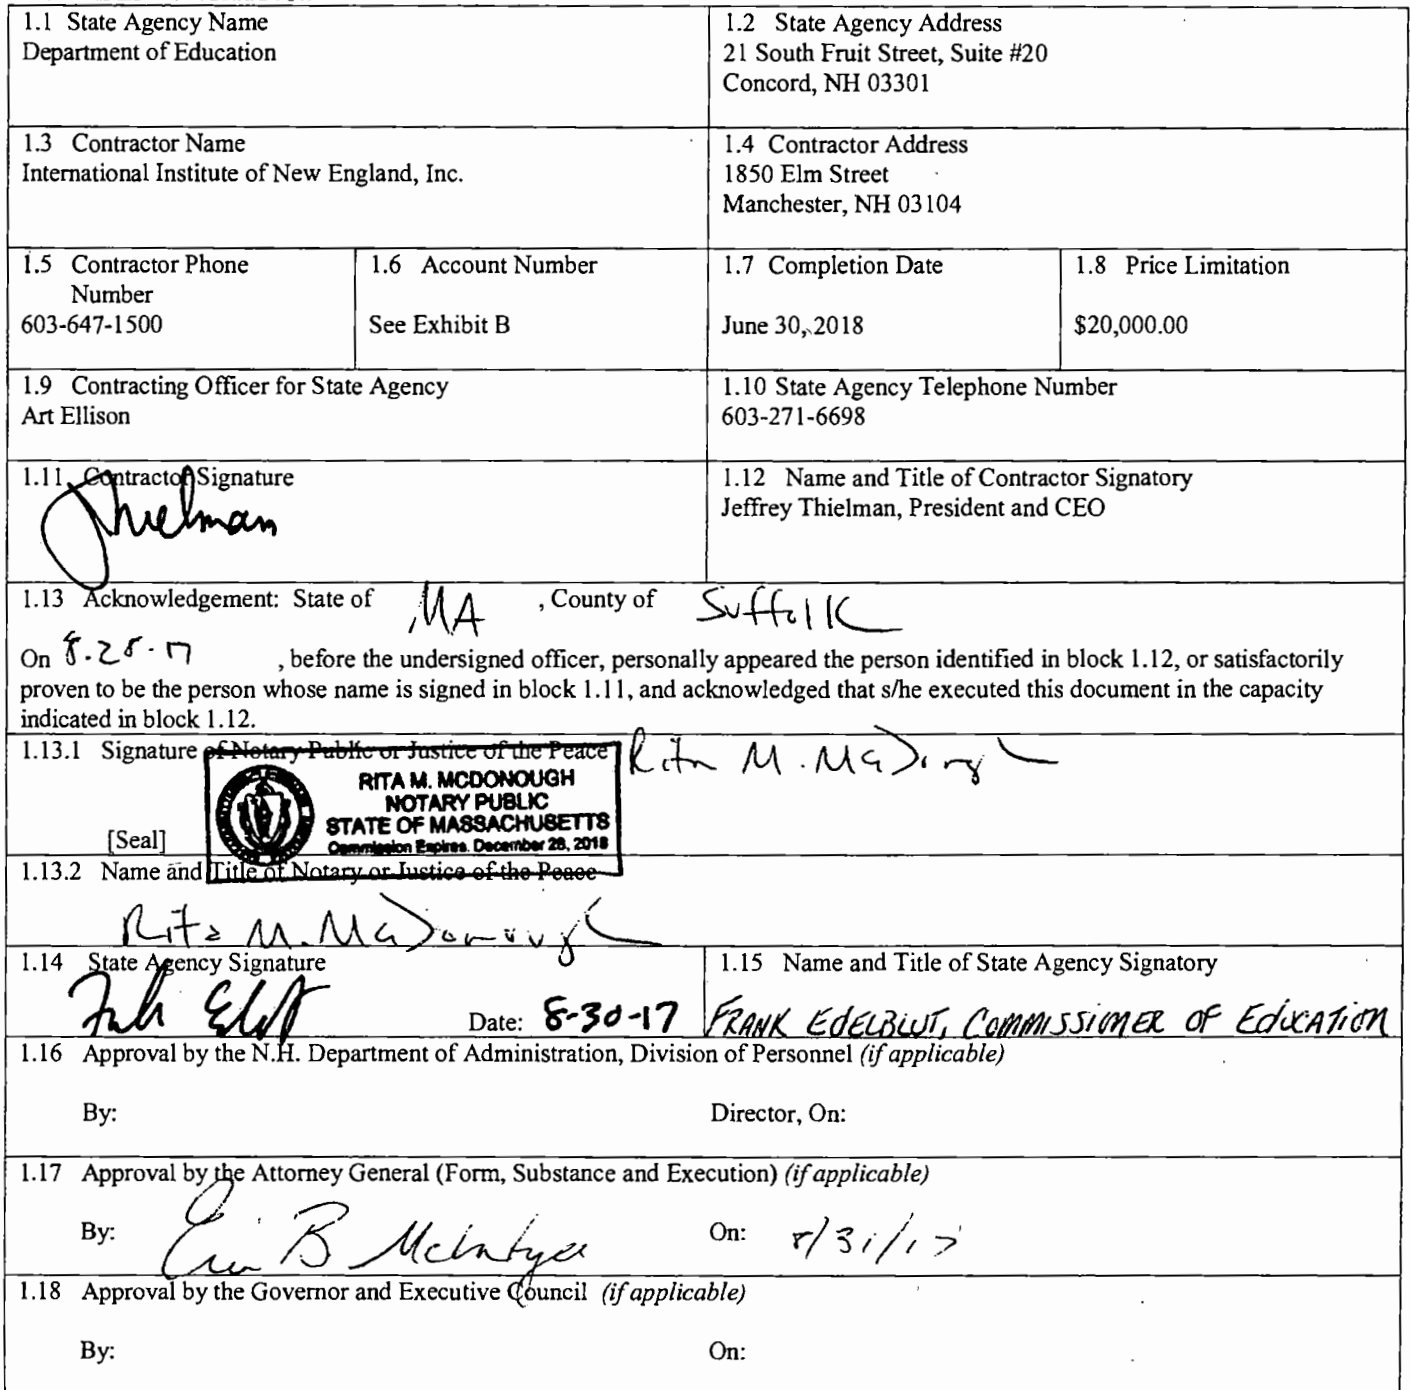 1.1 State Agency Name
Department of Education
1.2 State Agency Address
21 South Fruit Street, Suite #20
Concord, NH 03301
1.3 Contractor Name
International Institute of New England, Inc.
1.4 Contractor Address
1850 Elm Street
Manchester, NH 03104
1.5 Contractor Phone
Number
603-647-1500
1.6 Account Number
See Exhibit B
1.7 Completion Date
June 30, 2018
1.8 Price Limitation
$20,000.00
1.9 Contracting Officer for State Agency
Art Ellison
1.10 State Agency Telephone Number
603-271-6698
1.11 Contractor Signature
JThielman
1.12 Name and Title of Contractor Signatory
Jeffrey Thielman, President and CEO
1.13 Acknowledgement: State of MA , County of Suffolk
On 8.28.17 , before the undersigned officer, personally appeared the person identified in block 1.12, or satisfactorily
proven to be the person whose name is signed in block 1.11, and acknowledged that s/he executed this document in the capacity
indicated in block 1.12.
1.13.1 Signature of Notary Public or Justice of the Peace Rita M. McDonough
RITA M. MCDONOUGH
NOTARY PUBLIC
STATE OF MASSACHUSETTS
Commission Expires. December 28, 2018
[Seal]
1.13.2 Name and Title of Notary or Justice of the Peace
Rita M. McDonough
1.14 State Agency Signature
Date: 8-30-17
1.15 Name and Title of State Agency Signatory
FRANK EDELBLUT, COMMISSIONER OF EDUCATION
1.16 Approval by the N.H. Department of Administration, Division of Personnel (if applicable)
By: Director, On:
1.17 Approval by the Attorney General (Form, Substance and Execution) (if applicable)
By: Erin B McIntyre On: 8/31/17
1.18 Approval by the Governor and Executive Council (if applicable)
By: On: